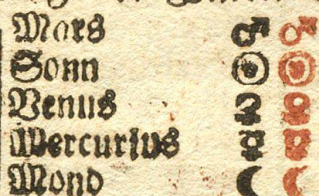 Mars ♂ ♂
Sonn ☉ ☉
Venus ♀ ♀
Mercurius ☿ ☿
Mond ☾ ☾